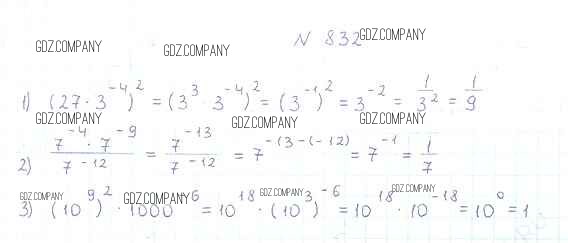 N 832
GDZ.COMPANY GDZ.COMPANY GDZ.COMPANY
1) (27 · 3⁻⁴)² = (3³ · 3⁻⁴)² = (3⁻¹)² = 3⁻² = 1/3² = 1/9
GDZ.COMPANY GDZ.COMPANY GDZ.COMPANY
2) 7⁻⁴ · 7⁻⁹ / 7⁻¹² = 7⁻¹³ / 7⁻¹² = 7⁻¹³⁻⁽⁻¹²⁾ = 7⁻¹ = 1/7
GDZ.COMPANY GDZ.COMPANY GDZ.COMPANY GDZ.COMPANY
3) (10⁹)² · 1000⁻⁶ = 10¹⁸ · (10³)⁻⁶ = 10¹⁸ · 10⁻¹⁸ = 10⁰ = 1